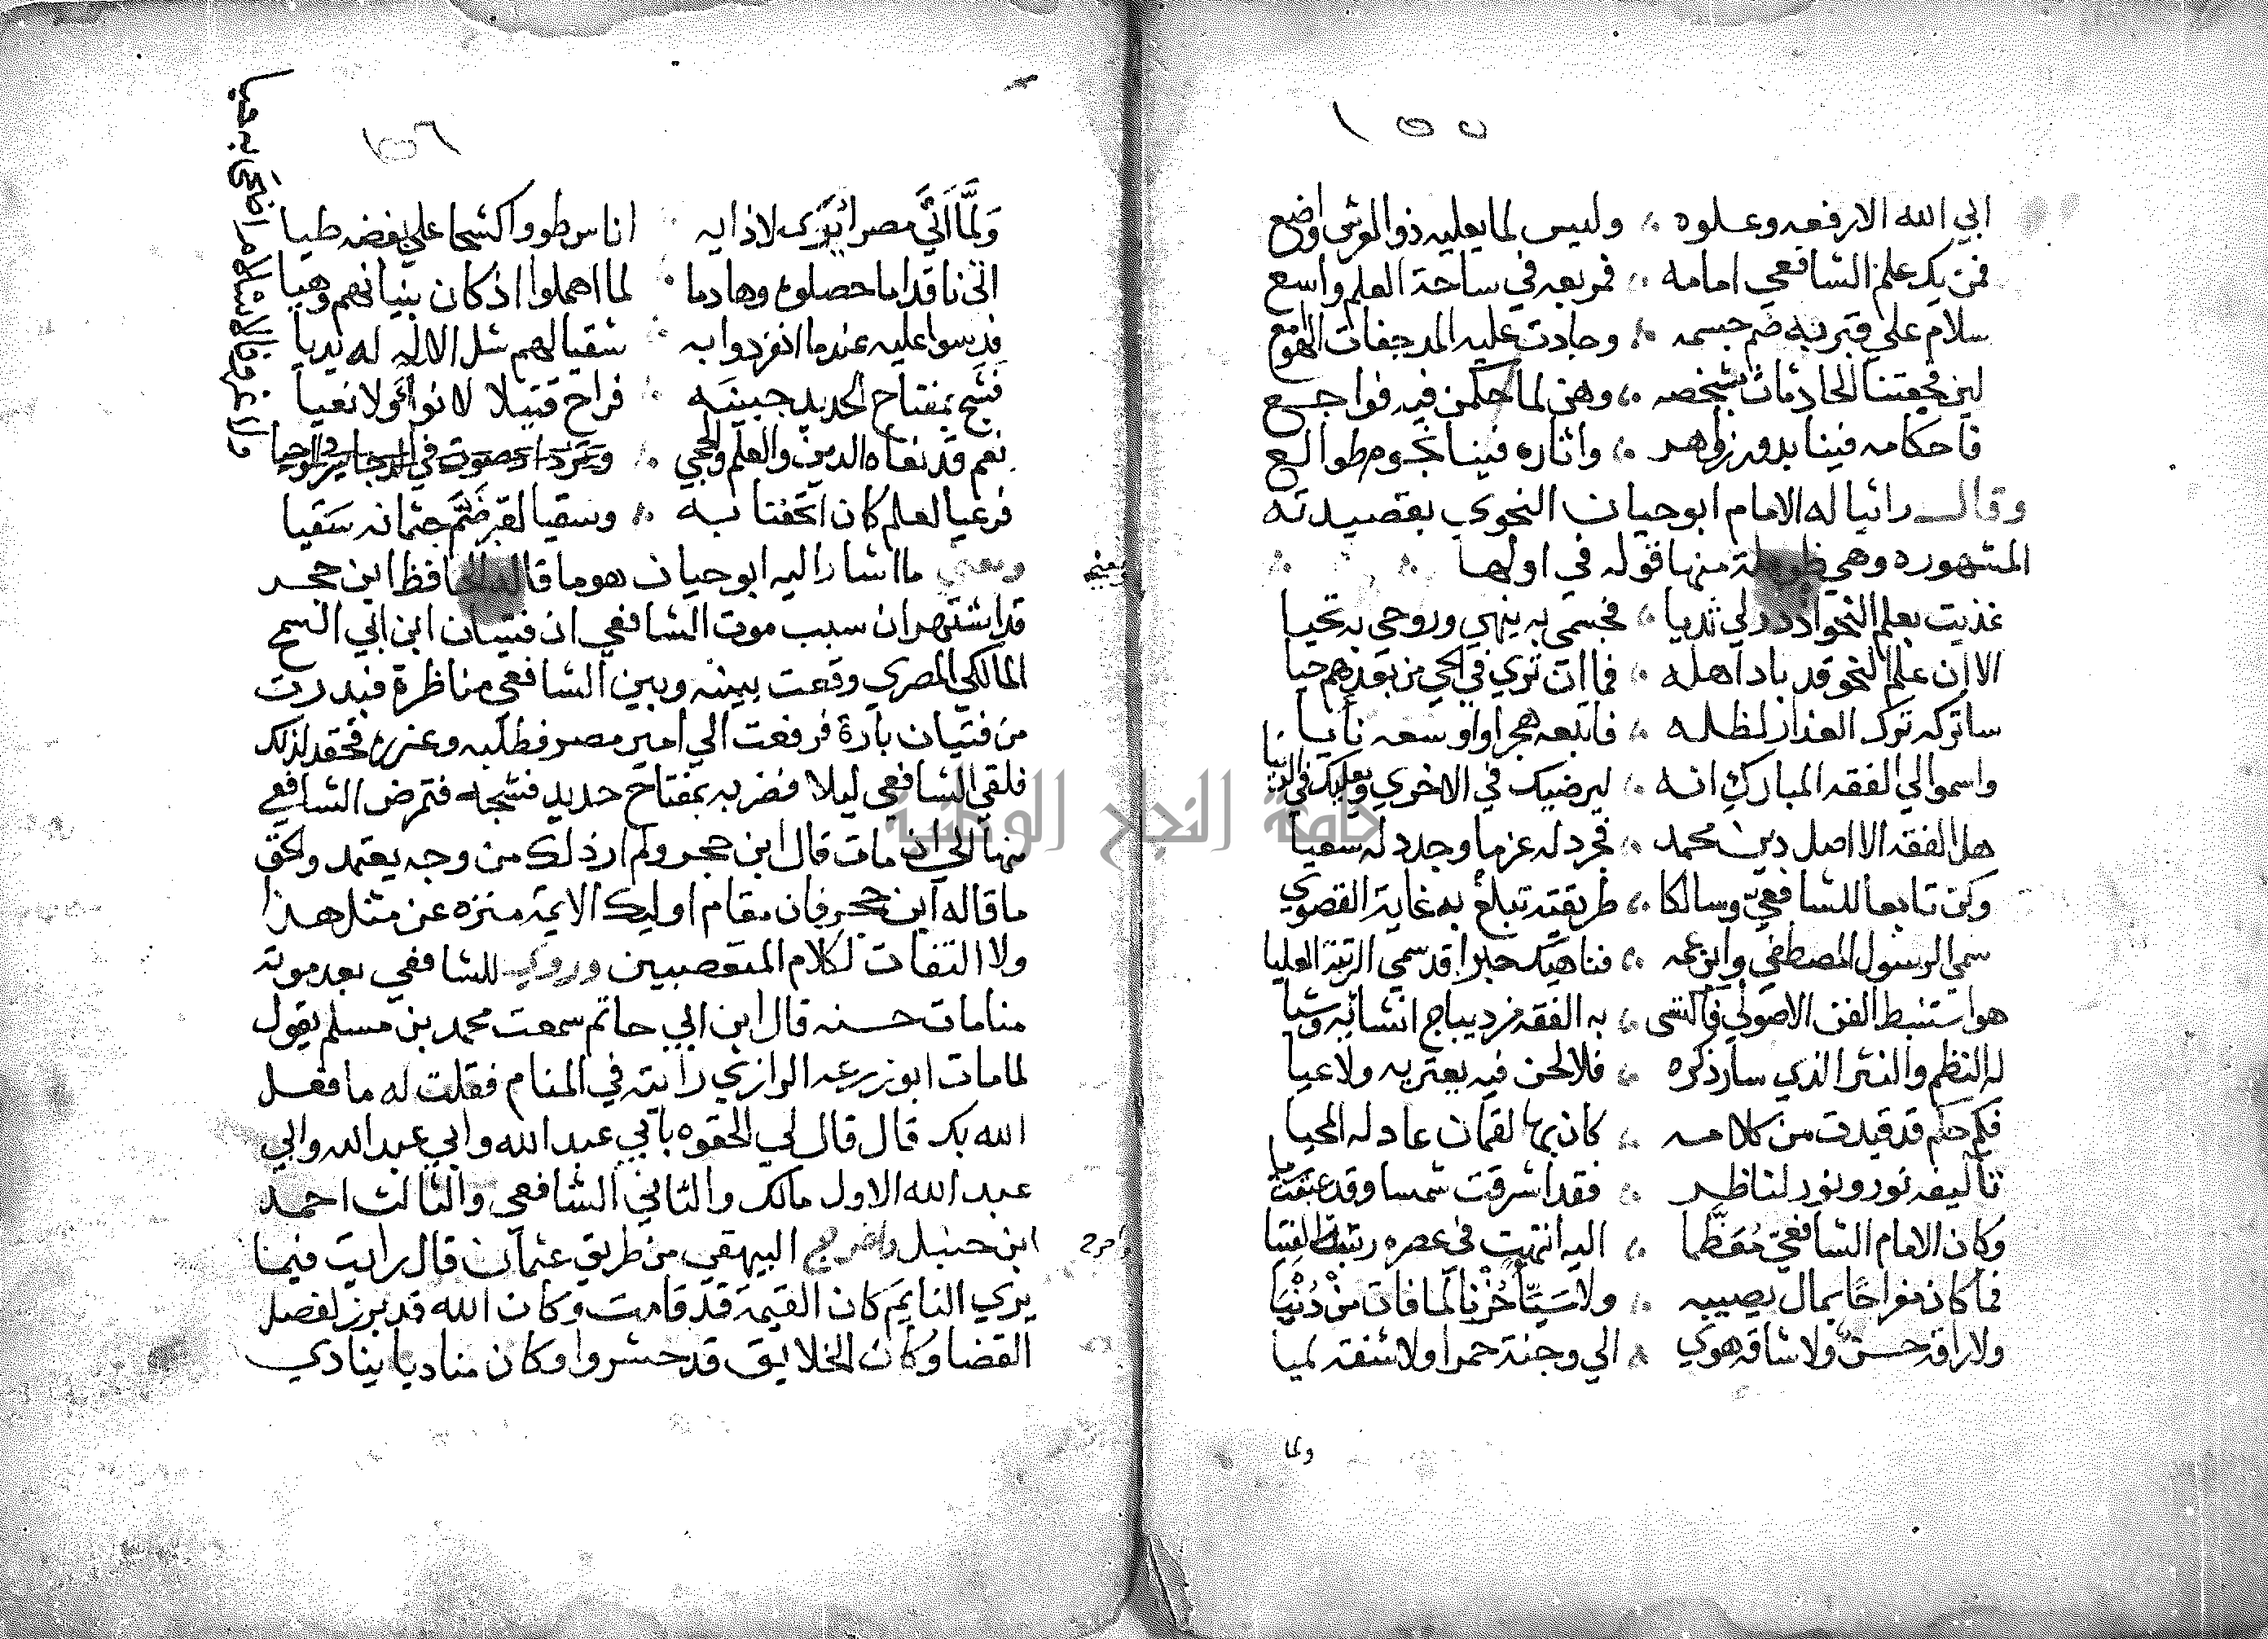 ١٥٥
ابي الله الا رفعه وعلوه ؞ وليس لما يعليه ذو العرش واضع
فمن يك علم الشافعي امامه ؞ فمربعه في ساحة العلم واسع
سلام علي قبر به ضم جسمه ؞ وجادت عليه المدجفات الهوامع
لين فجعتنا الحادثات بشخصه ؞ وهن لما حكمن فيه فواجع
فاحكامه فينا بدور زواهر ؞ واثاره فينا نجوم طوالع
وقال راثيا له الامام ابو حيان النحوي بقصيدته
المشهوره وهي طويلة منها قوله في اولها
غذيت بعلم النحو اذ در لي ثديا ؞ فجسمي به ينمي وروحي به تحيا
الا ان علم النحو قد باد اهله ؞ فما ان تري في الحي من بعدهم حيا
ساتركه ترك الغزال لظله ؞ فاتبعه هجرا واوسعه نايا
واسموا لي الفقه المبارك انه ؞ ليرضيك في الاخري ويعليك في الدنيا
هل الفقه الا اصل دين محمد ؞ فجرد له عزما وجدد له سعيا
وكن تابعا للشافعي وسالكا ؞ طريقته تبلغ به غاية القصوي
سمي الرسول المصطفي وابن عمه ؞ فناهيك حبرا قد سمي الرتبة العليا
هو استنبط الفن الاصولي فاكتسي ؞ به الفقه من ديباج انشائه وشيا
له النظم والنثر الذي سار ذكره ؞ فلا لحن فيه يعتريه ولا عيا
فكم حكم قد قيدت من كلامه ؞ كان بها لقمان عاد له المحيا
تاليفه نور ونور لناظر ؞ فقد اشرقت شمسا وقد عبقت
وكان الامام الشافعي معظما ؞ اليه انتهت في عصره رتبة الفتيا
فما كان مفراحا بمال يصيبه ؞ ولا سيئا حزنا لما فات من دنيا
ولا راقه حسن ولا شاقه هوي ؞ الي وجنة حمرا ولا شفة لميا
ولما
١٥٦
ولما اتي مصر انبري لاذايه ؞ اناس طووا كشحا علي بغضه طيا
اتي ناقدا ما حصلوه وهادما ؞ لما اهملوا اذ كان بنيانهم وهيا
فدسوا عليه عندما انفردوا به ؞ شقيا لهم شل الاله له يديا
فشج بمفتاح الحديد جبينه ؞ فراح قتيلا لا نواح ولا نعيا
نعم قد نعاه الدين والعلم والحجي
فرعيا لعلم كان اتحفنا به ؞ وسقيا لقبر ضم جثمانه سقيا
ومعني ما اشار اليه ابو حيان هو ما قاله الحافظ ابن حجر
قد اشتهر ان سبب موت الشافعي ان فتيان ابن ابي السمح
المالكي المصري وقعت بينه وبين الشافعي مناظرة فبدرت
من فتيان بادرة فرفعت الي امير مصر فطلبه وعزره فحقد لذلك
فلقي الشافعي ليلا فضربه بمفتاح حديد فشجه فتمرض الشافعي
منها الي ان مات قال ابن حجر ولم ار ذلك من وجه يعتمد والحق
ما قاله ابن حجر فان مقام اوليك الايمة منزه عن مثل هذا
ولا التفات لكلام المتعصبين وروي للشافعي بعد موته
منامات حسنه قال ابن ابي حاتم سمعت محمد بن مسلم يقول
لما مات ابو زرعه الرازي رايته في المنام فقلت له ما فعل
الله بك قال قال لي الحقوه بابي عبد الله وابي عبد الله وابي
عبد الله الاول مالك والثاني الشافعي والثالث احمد
ابن حنبل واخرج البيهقي من طريق عثمان قال رايت فيما
يري النايم كان القيمة قد قامت وكان الله قد برز لفصل
القضا وكان الخلايق قد حشروا وكان مناديا ينادي
جامعة النجاح الوطنية